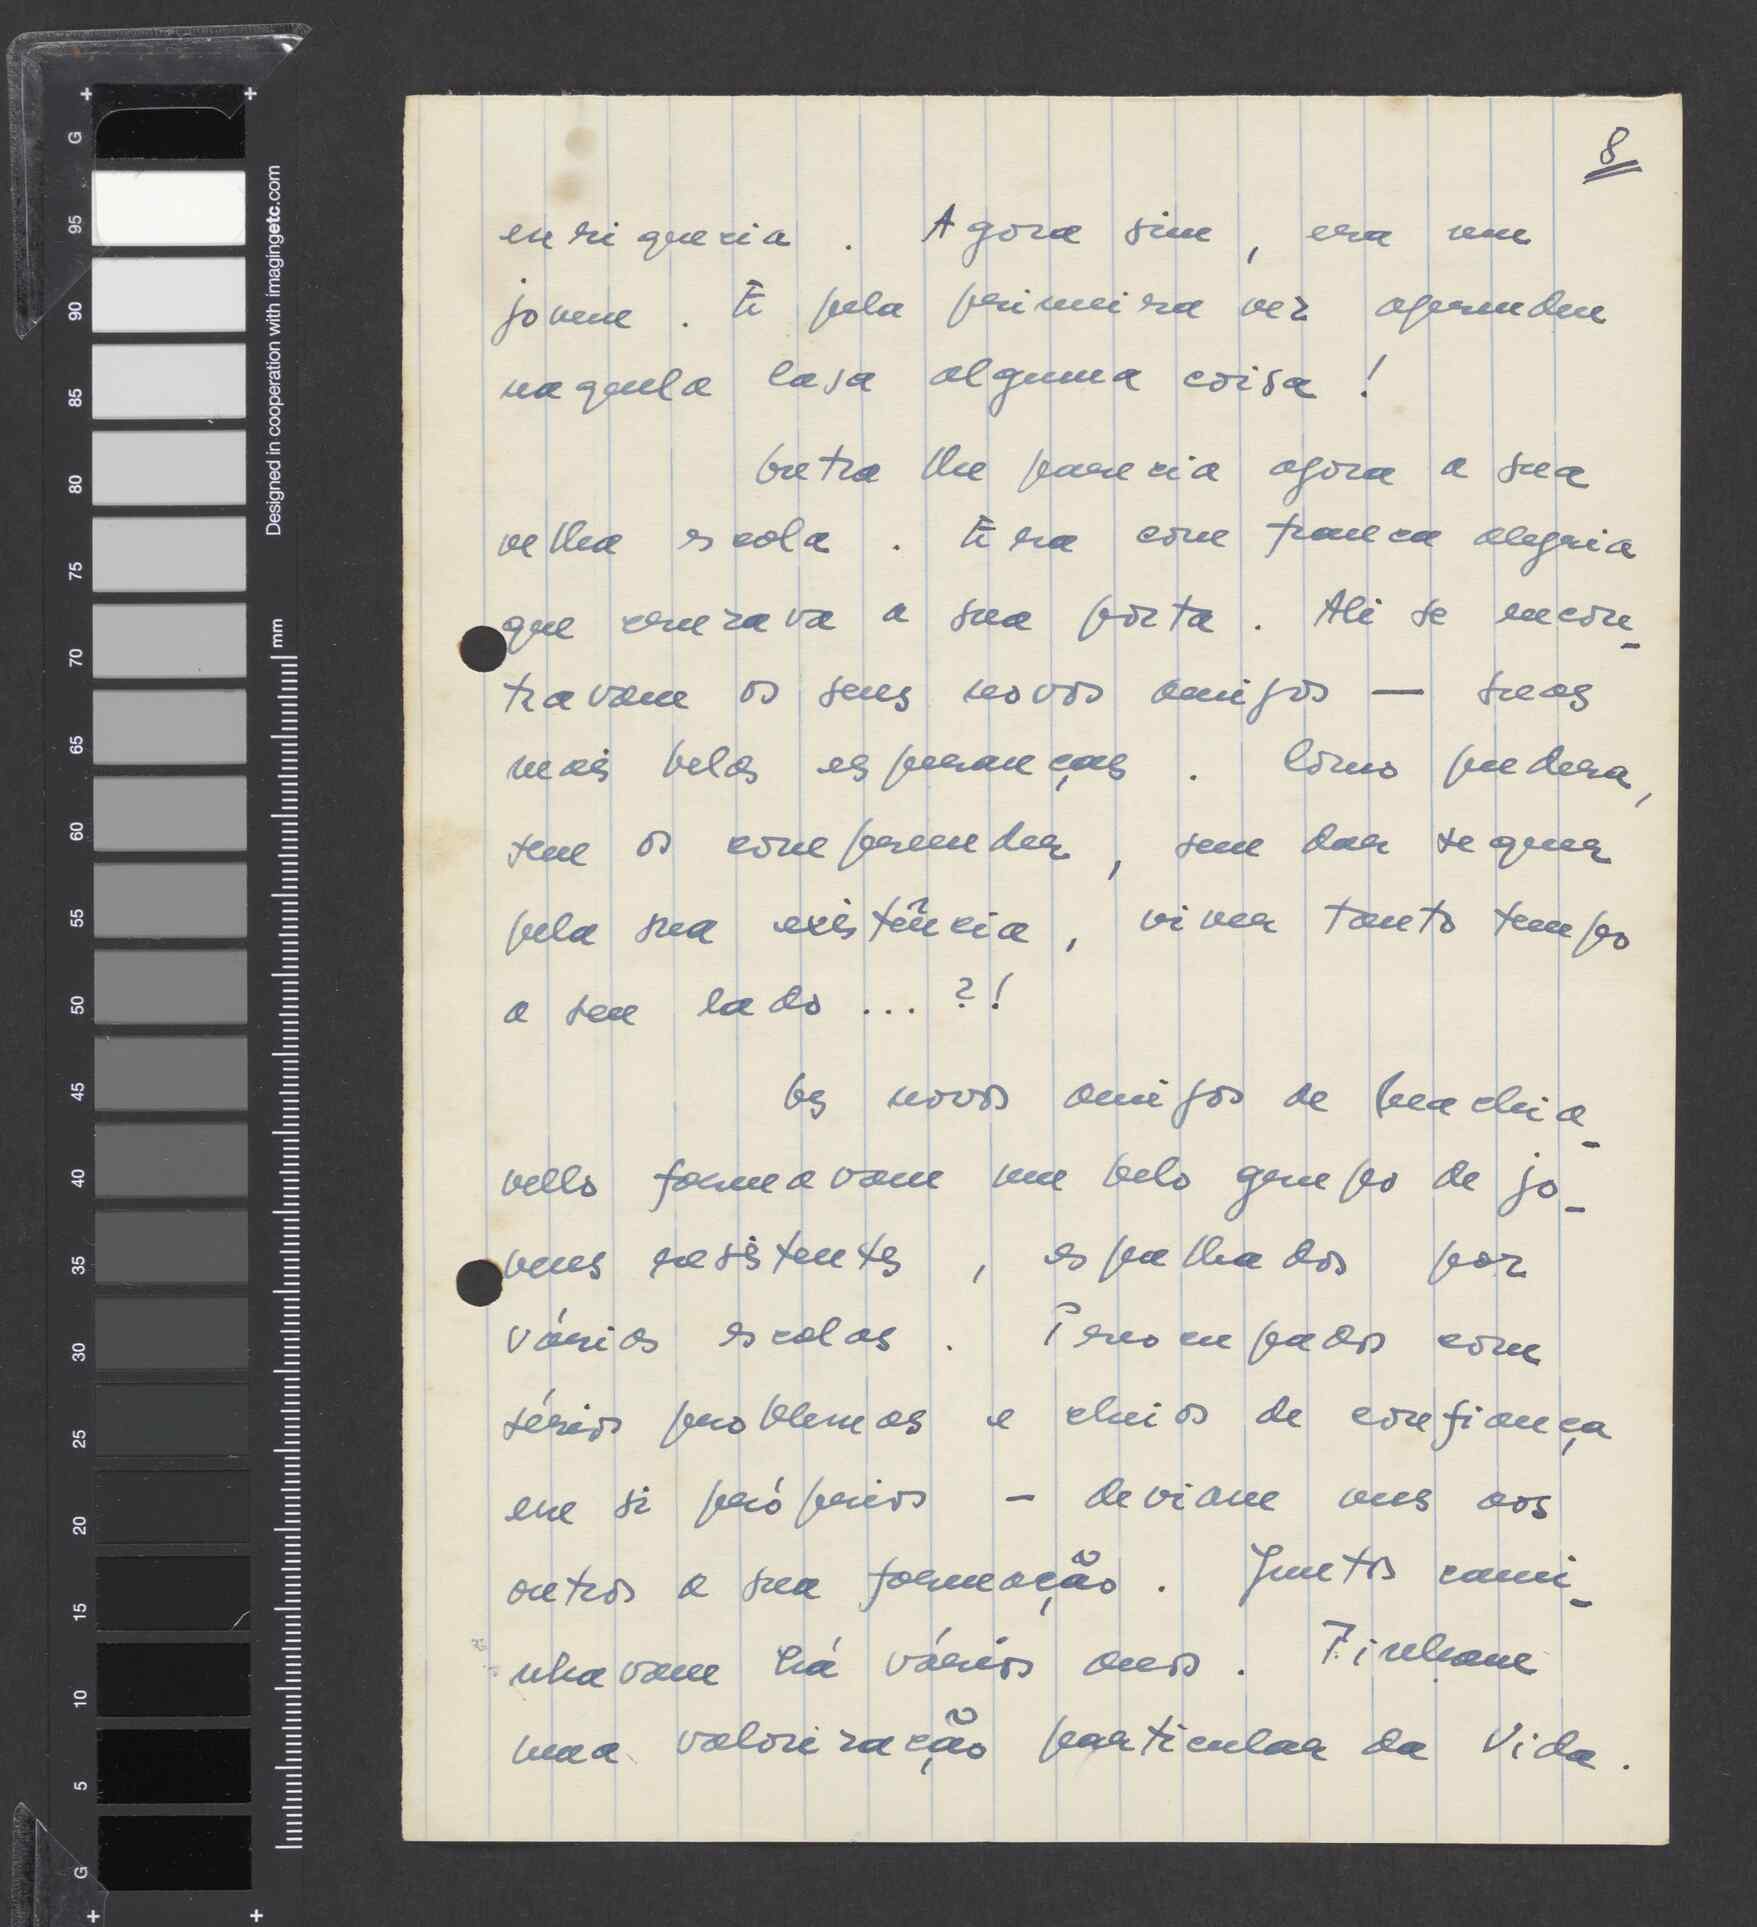 8
enriquecia. Agora sim, era um
jovem. E pela primeira vez aprendeu
naquela casa alguma coisa!
Outra lhe parecia agora a sua
velha escola. Era com franca alegria
que cruzava a sua porta. Ali se encon-
travam os seus novos amigos — suas
mais belas esperanças. Como pudera,
sem os compreender, sem dar sequer
pela sua existência, viver tanto tempo
a seu lado...?!
Os novos amigos de Machia-
vello formavam um belo grupo de jo-
vens resistentes, espalhados por
várias escolas. Preocupados com
sérios problemas e cheios de confiança
em si próprios — deviam uns aos
outros a sua formação. Juntos cami-
nhavam há vários anos. Tinham
uma valorização particular da Vida.
G
95
90
85
80
75
70
65
60
55
50
45
40
35
30
25
20
15
10
5
G
Designed in cooperation with imagingetc.com
mm